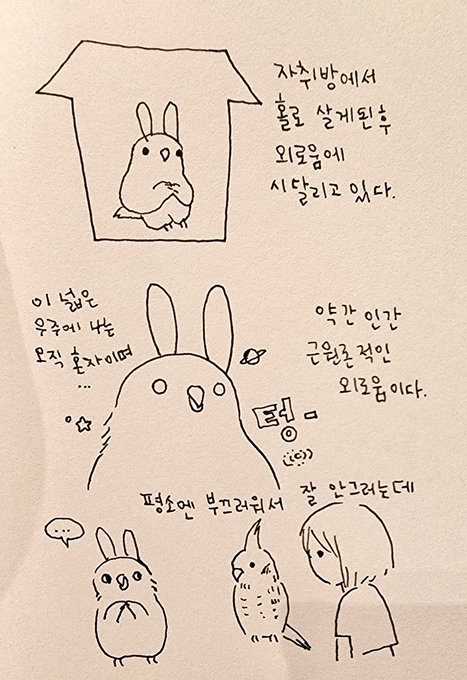 자취방에서
홀로 살게된후
외로움에
시달리고 있다.
이 넓은
우주에 나는
오직 혼자이며
...
약간 인간
근원론적인
외로움이다.
텅-
평소엔 부끄러워서 잘 안그러는데
...